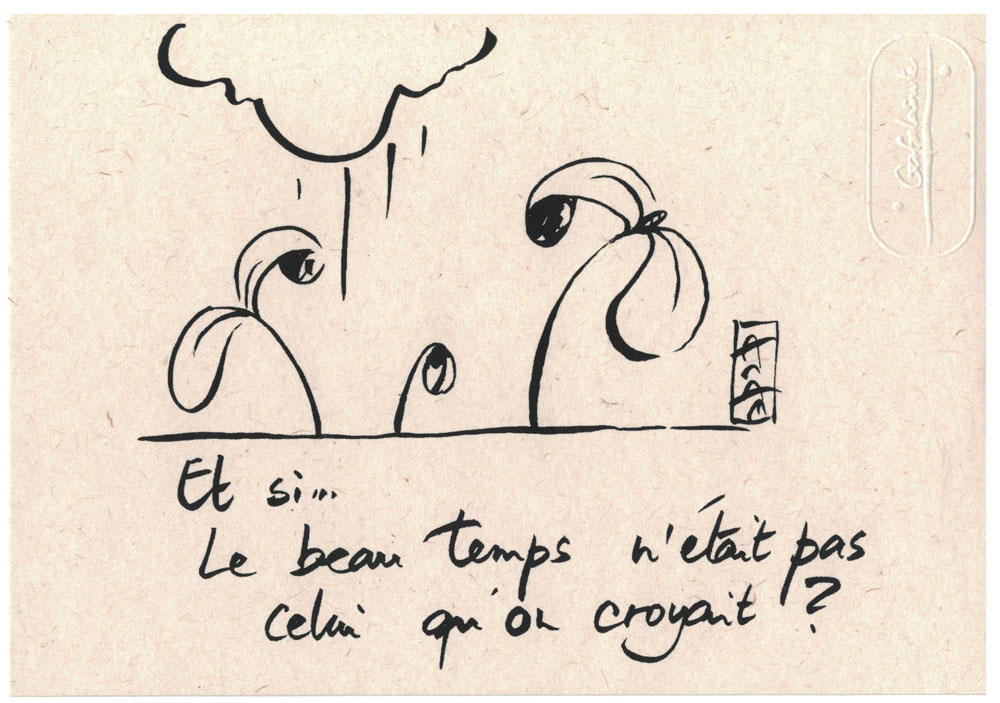 Et si...
Le beau temps n'était pas
celui qu'on croyait ?